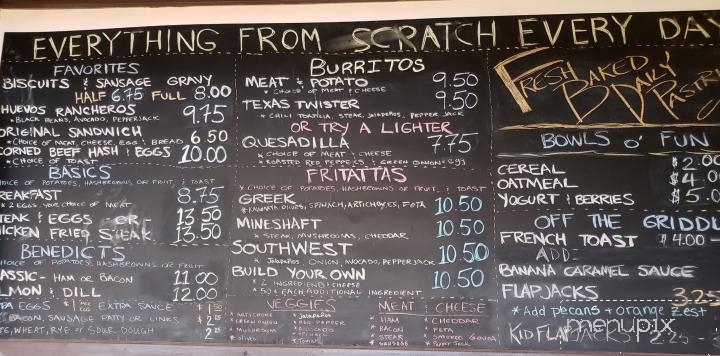 EVERYTHING FROM SCRATCH EVERY DAY
FAVORITES
BISCUITS & SAUSAGE GRAVY
HALF 6.75 FULL 8.00
HUEVOS RANCHEROS 9.75
* BLACK BEANS, AVOCADO, PEPPERJACK
ORIGINAL SANDWICH 6.50
* CHOICE OF MEAT, CHEESE, EGG & BREAD
CORNED BEEF HASH & EGGS 10.00
* CHOICE OF TOAST
BASICS
CHOICE OF POTATOES, HASHBROWNS OR FRUIT, & TOAST
BREAKFAST 8.75
* 2 EGGS YOUR CHOICE OF MEAT
STEAK & EGGS OR 13.50
CHICKEN FRIED STEAK 13.50
BENEDICTS
CHOICE OF POTATOES, HASHBROWNS OR FRUIT
CLASSIC - HAM OR BACON 11.00
SALMON & DILL 12.00
EXTRA EGGS EXTRA SAUCE
BACON, SAUSAGE PATTY OR LINKS
WHITE, WHEAT, RYE OR SOUR DOUGH
BURRITOS
MEAT & POTATO 9.50
* CHOICE OF MEAT & CHEESE
TEXAS TWISTER 9.50
* CHILI TORTILLA, STEAK, JALAPEÑOS, PEPPER JACK
OR TRY A LIGHTER
QUESADILLA 7.75
* CHOICE OF MEAT & CHEESE
* ROASTED RED PEPPERS & GREEN ONION & EGG
FRITATTAS
* CHOICE OF POTATOES, HASHBROWNS OR FRUIT, & TOAST
GREEK 10.50
* KALAMATA OLIVES, SPINACH, ARTICHOKES, FETA
MINESHAFT 10.50
* STEAK, MUSHROOMS, CHEDDAR
SOUTHWEST 10.50
* JALAPEÑOS, ONION, AVOCADO, PEPPERJACK
BUILD YOUR OWN 10.50
* 2 INGREDIENTS & CHEESE
* 50¢ EACH ADDITIONAL INGREDIENT
VEGGIES
* ARTICHOKE
* GREEN ONION
* MUSHROOM
* OLIVES
* JALAPEÑOS
* RED PEPPER
* AVOCADO
* SPINACH
* TOMATO
MEAT & CHEESE
* HAM
* BACON
* STEAK
* SAUSAGE
* CHEDDAR
* FETA
* SMOKED GOUDA
* PEPPER JACK
FRESH BAKED DAILY
PASTRIES
BOWLS O' FUN
CEREAL $2.00
OATMEAL $4.0
YOGURT & BERRIES $5.0
OFF THE GRIDDLE
FRENCH TOAST $4.00
ADD-
BANANA CARAMEL SAUCE
FLAPJACKS 3.25
*Add pecans & orange zest
KID FLAPJACKS 2.25
menupix